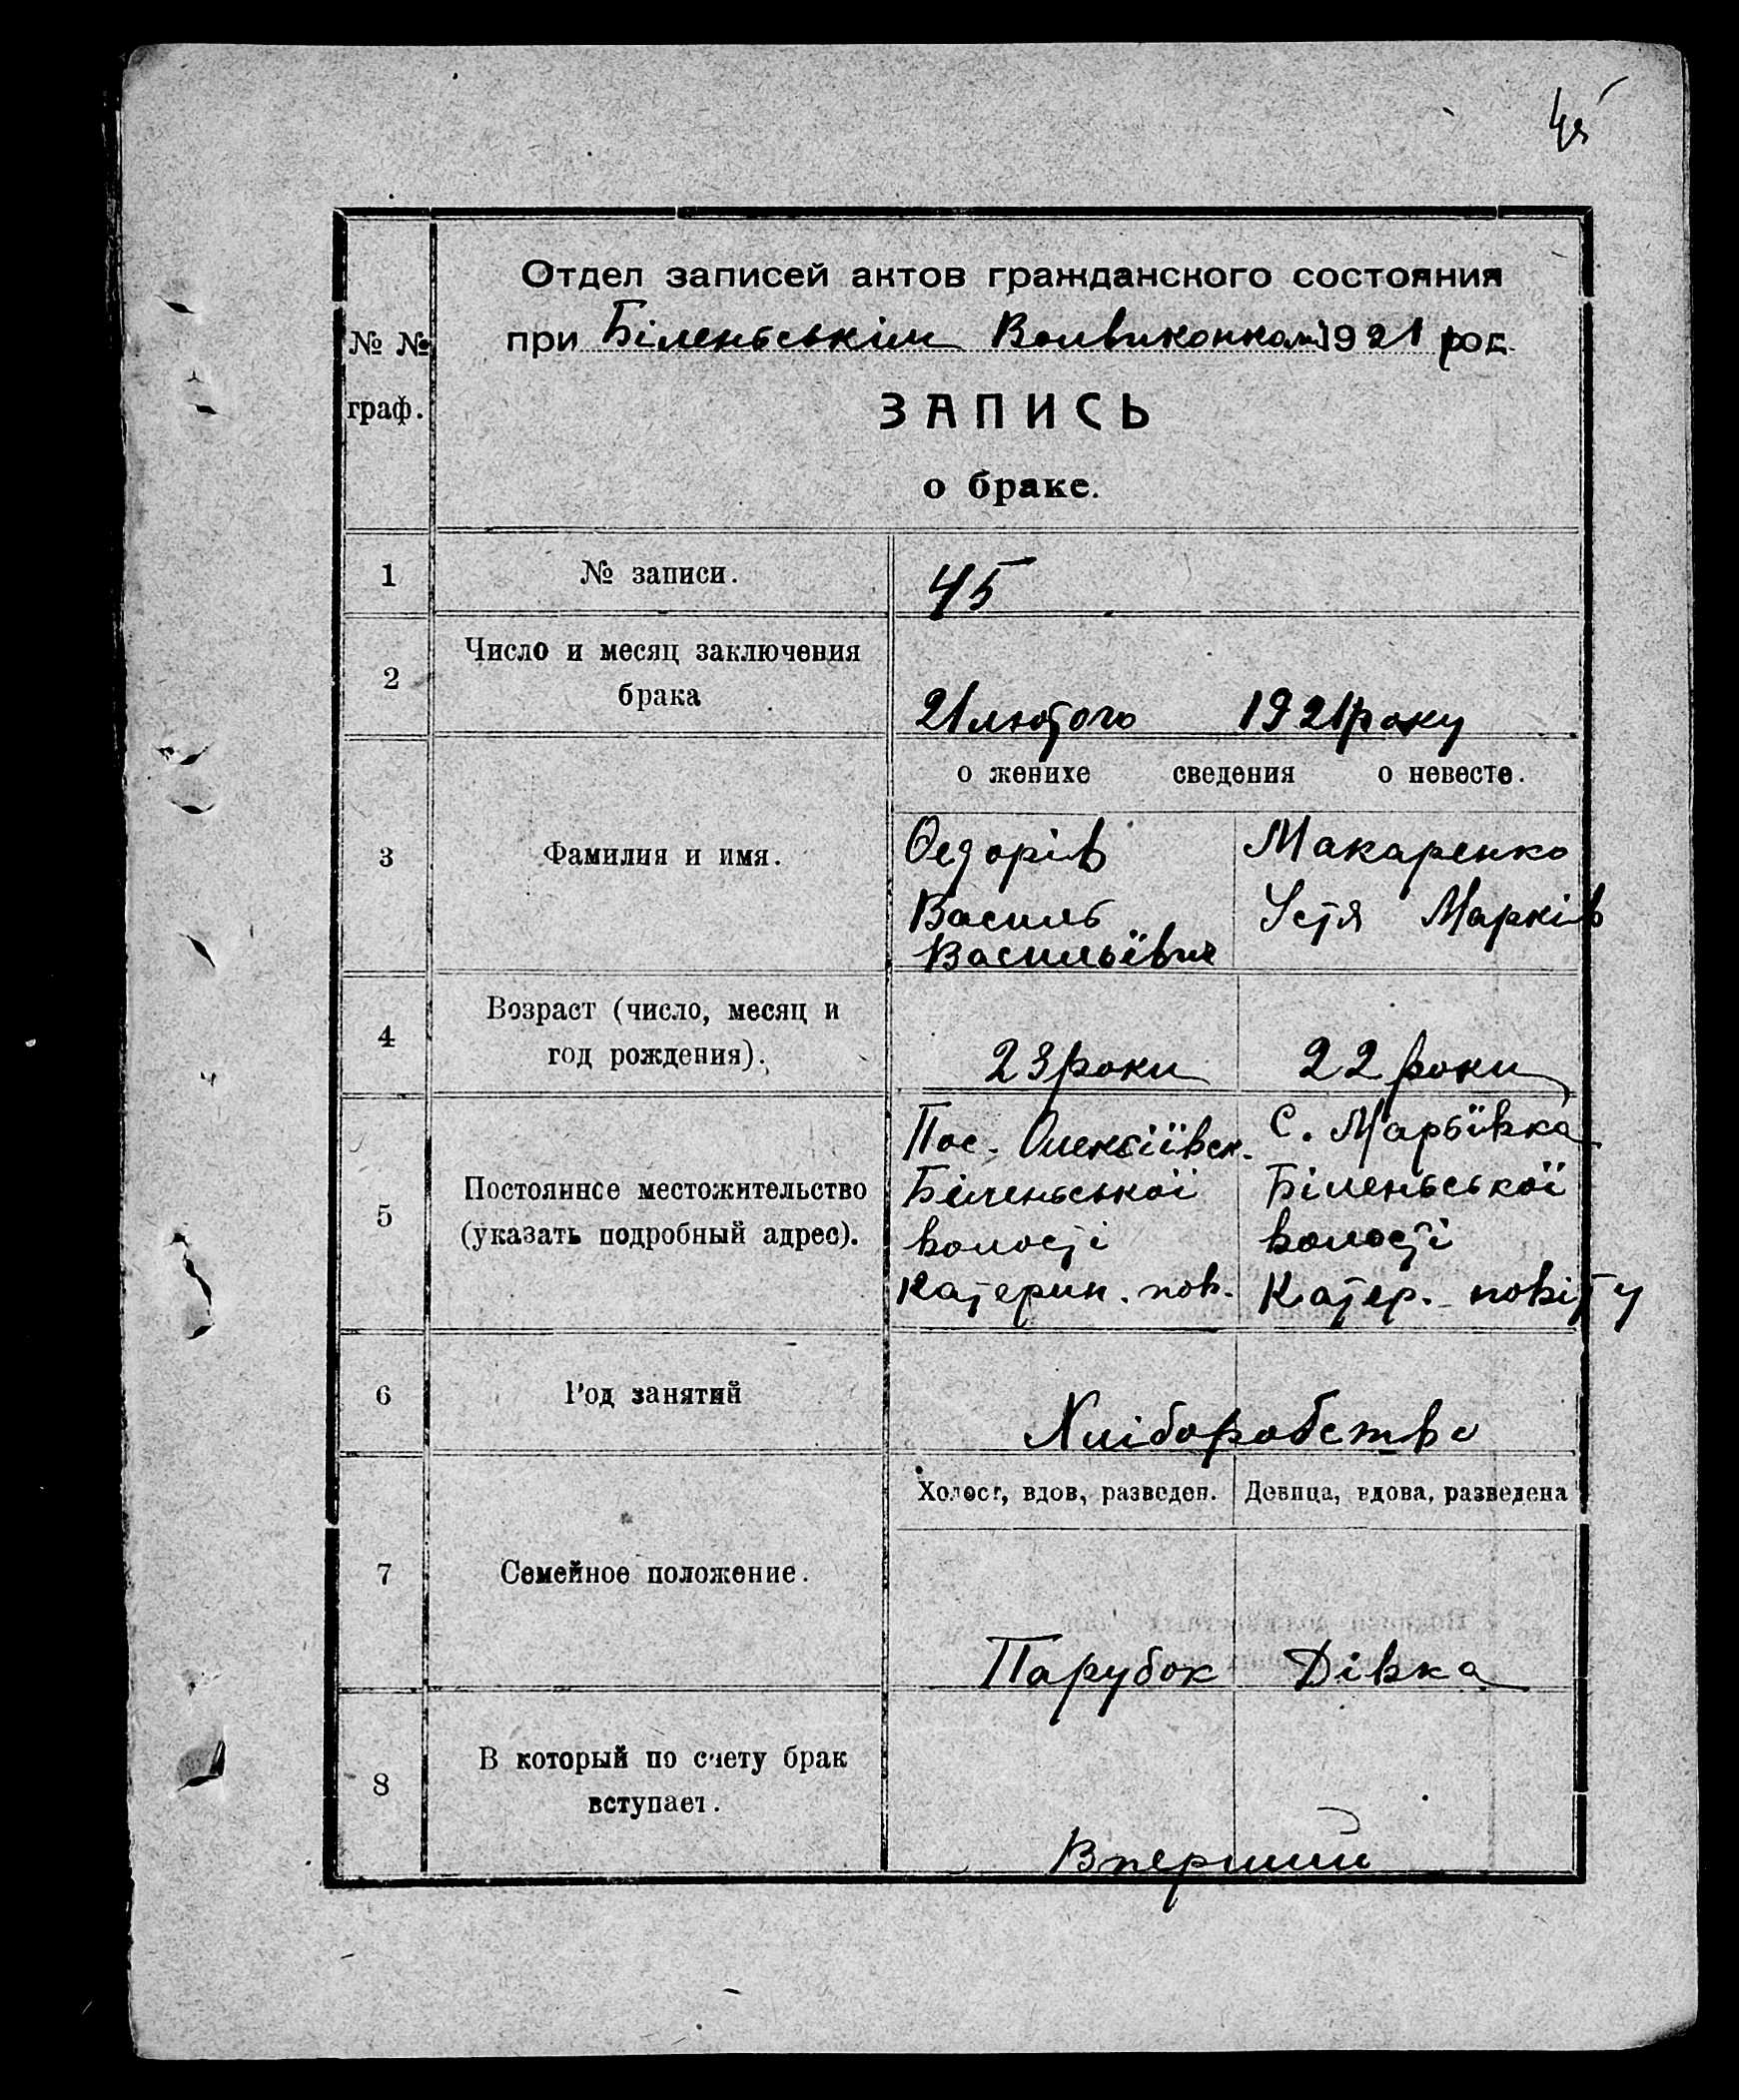 45
Отдел записей актов гражданского состояния
при Біленьськім Волвиконком 1921 год.
№ №
граф.
ЗАПИСЬ
о браке.
1 № записи. 45
2 Число и месяц заключения
брака
21 лютого 1921 року
о женихе сведения о невесте.
3 Фамилия и имя.
Федорів Макаренко
Василь Устя Марків
Васильївич
4 Возраст (число, месяц и
год рождения).
23 роки 22 роки
5 Постоянное местожительство
(указать подробный адрес).
Пос. Олексіївск. С. Марьївка
Біленьської Біленьської
волості волості
Катерин. пов. Катер. повіту
6 Род занятий
Хліборобство
Холост, вдов, разведен. Девица, вдова, разведена
7 Семейное положение.
Парубок Дівка
8 В который по счету брак
вступает.
Вперший